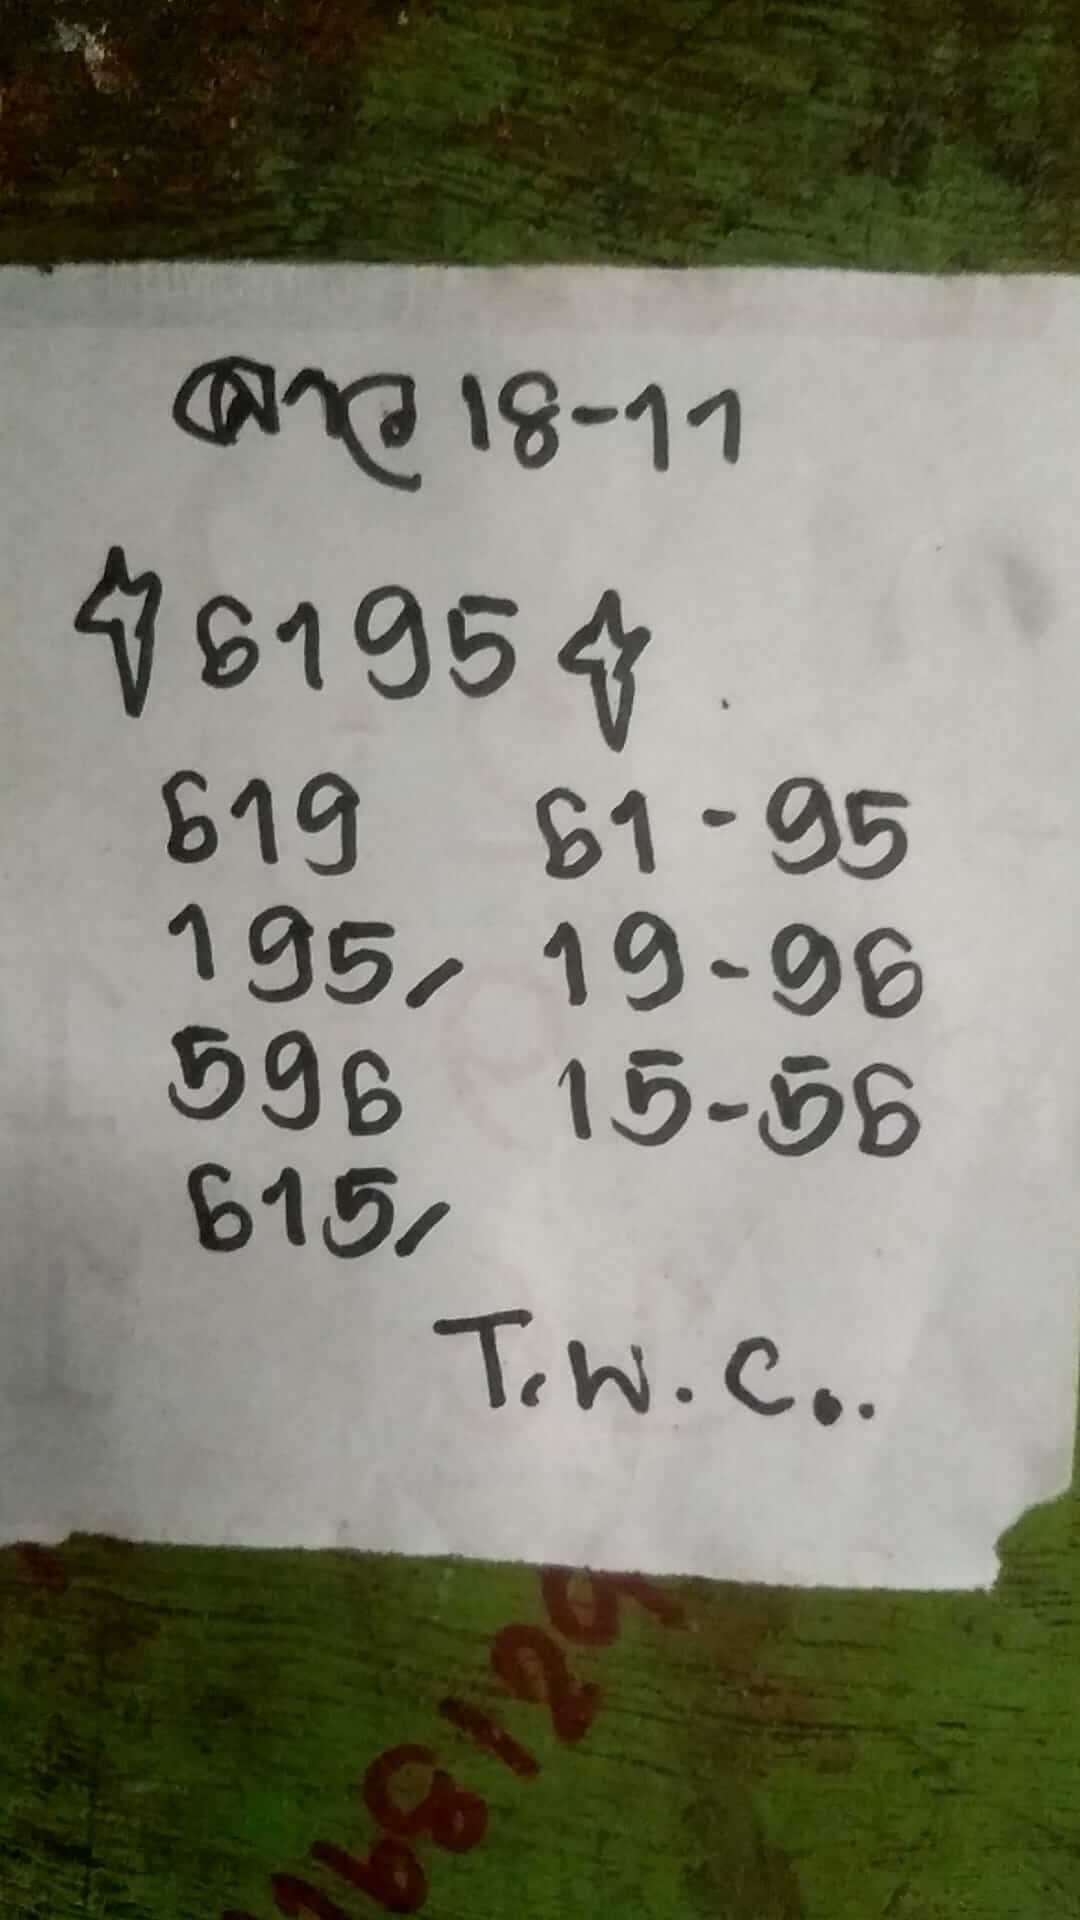 ลาว 18-11
6195
619 61-95
195, 19-96
596 15-56
615,
T.W.C..